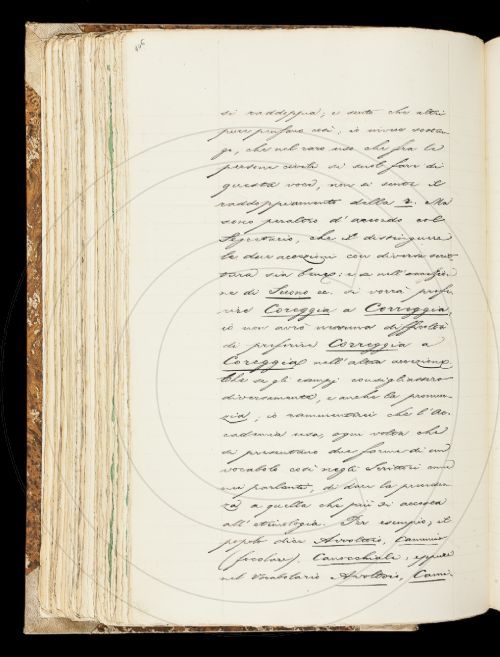 si raddoppia; e sento che altri
pure profano così; io invece sosten-
go, che nel raro uso che fra le
persone civili si suol fare di
questa voce, non si sente il
raddoppiamento della r. Ma
sono peraltro d'accordo col
Segretario, che il distinguere
le due accezioni con diversa scrit-
tura sia bene: e se nell'accezio-
ne di Suono ec. si vorrà prefe-
rire Coreggia a Correggia,
io non avrò nessuna difficoltà
di preferire Correggia a
Coreggia nell'altra accezione
che se gli esempj consigliassero
diversamente, e anche la pronun-
zia; io rammenterei che l'Ac-
cademia usa, ogni volta che
si presentano due forme di un
vocabolo così negli Scrittori come
nei parlanti, di dare la preceden-
za a quella che più si accosta
all'etimologia. Per esempio, il
popolo dice Avvoltoio, Cammino
(focolare). Canocchiale, eppure
nel Vocabolario Avoltoio, Cami-